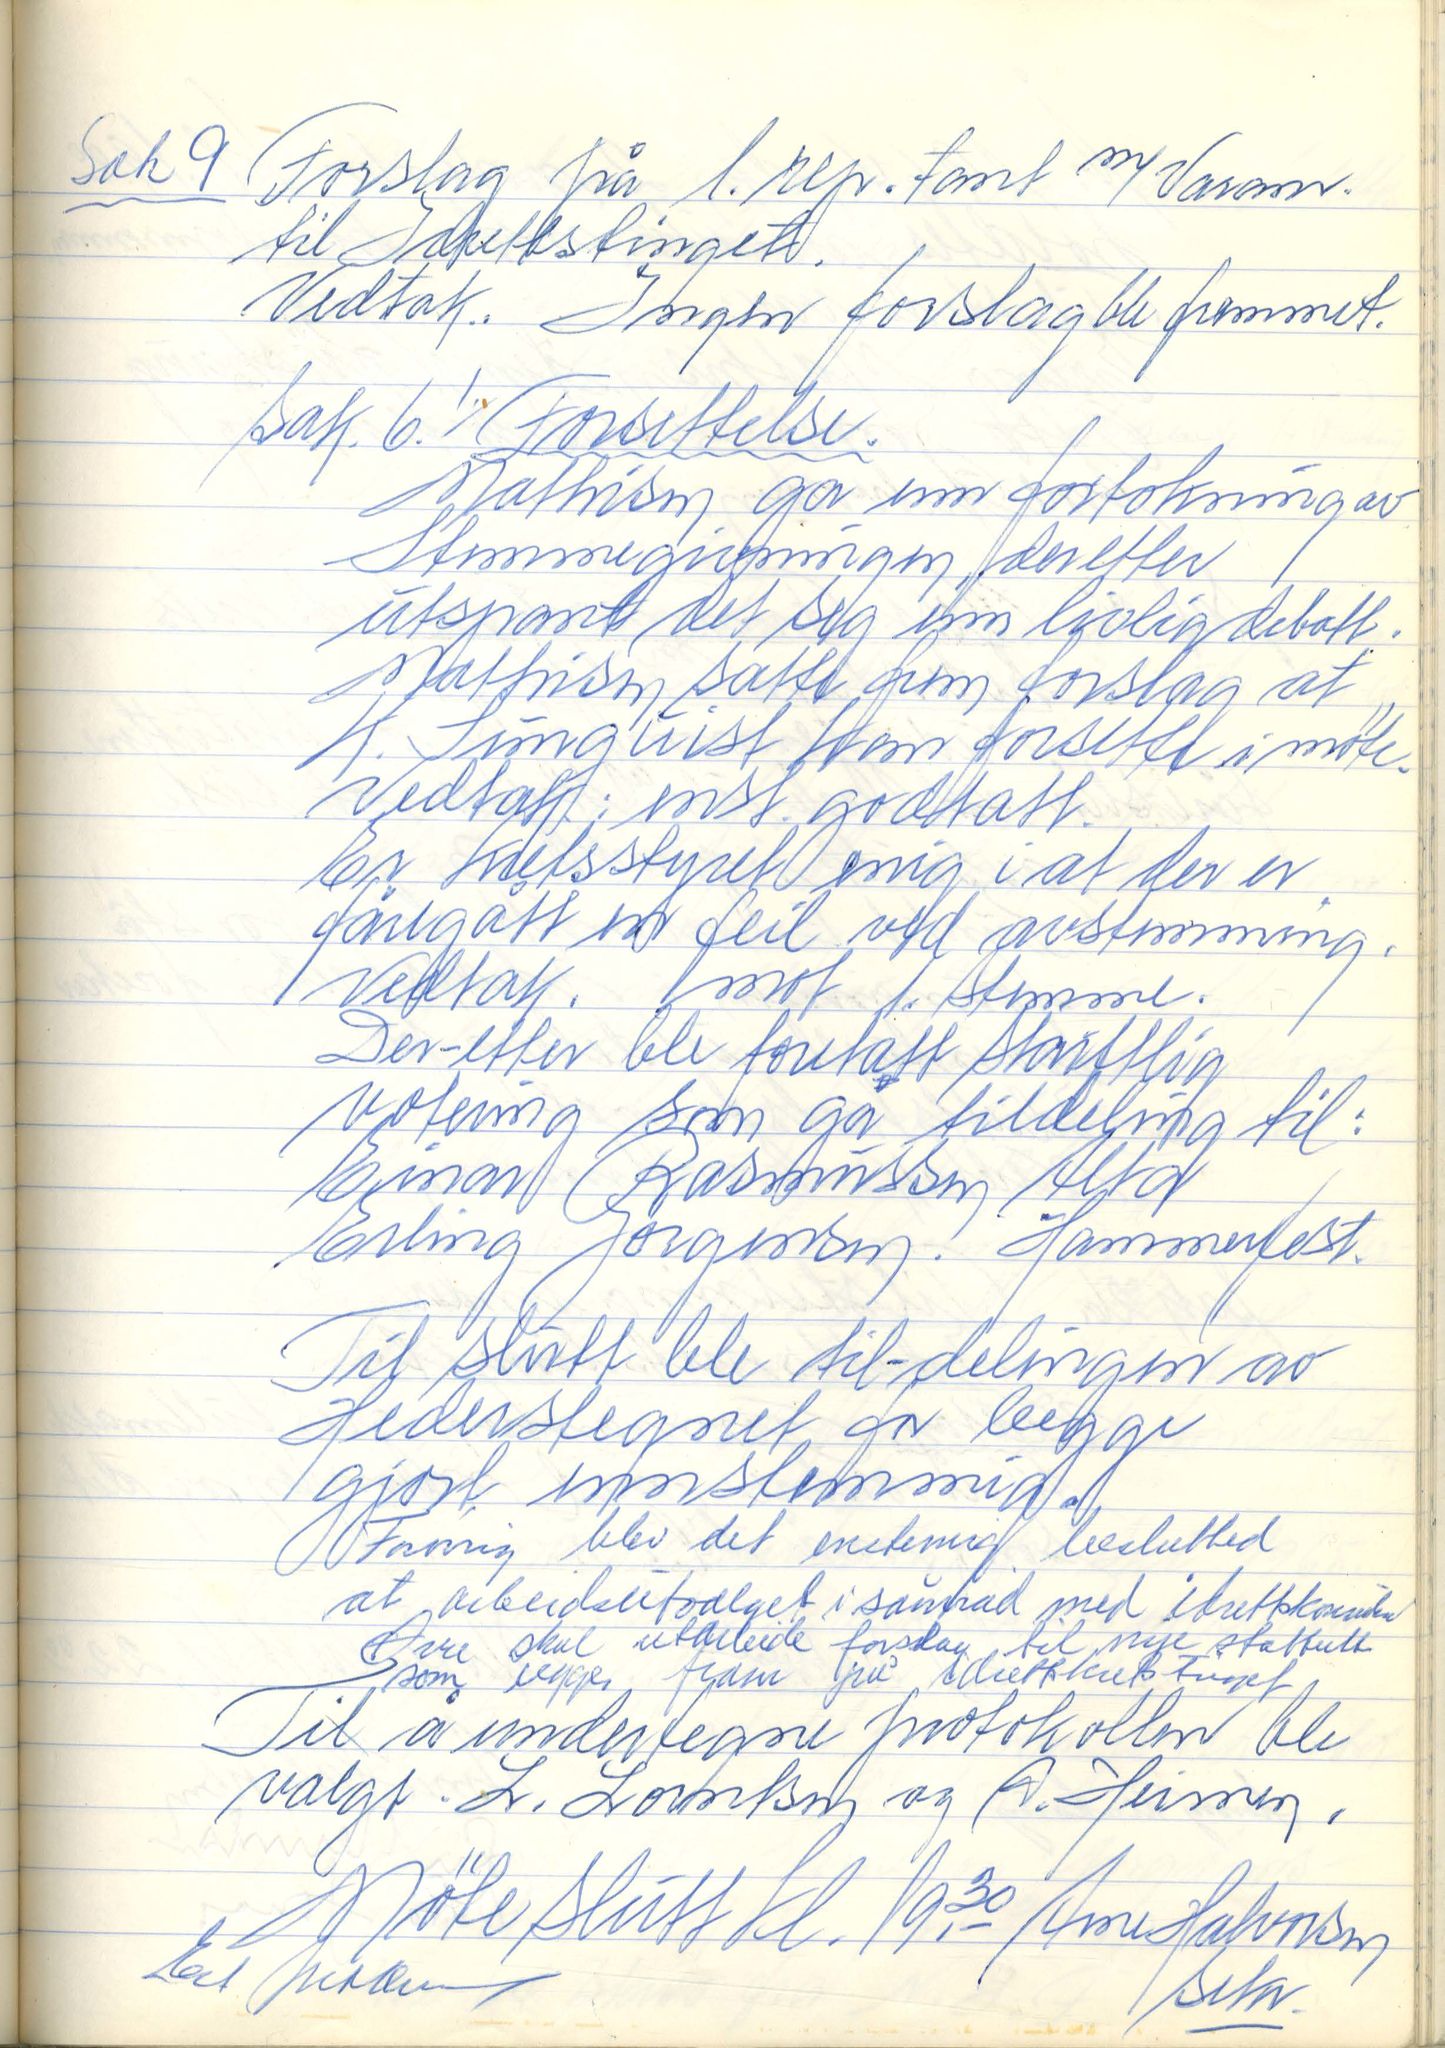 Sak 9 Forslag på 1. rep. samt m/ Varam.
til Idrettstinget.
Vedtak. Ingen forslag ble fremmet.
Sak. 6. Forsettelse.
Mathisen ga enn fortokning av
Stemmegivningen, deretter
utspant det seg enn livlig debatt.
Mathisen satte frem forslag at
K. Ljungquist kan forsette i møte.
Vedtak: enst. godtatt.
Er Kretsstyret enig i at der er
foregått en feil ved avstemning.
Vedtak. mot 1. stemme.
Der-etter ble foretatt skriftlig
votering som ga tildeling til:
Einar Rasmussen Alta
Erling Jørgensen. Hammerfest.
Til slutt ble til-delingen av
Hederstegnet for begge
gjort ennstemmig.
Forøvrig blev det enstemig beslutted
at arbeidsutvalget i samråd med idrettkonsulen
skal utarbeide forslag til nye statutt
som legges fram på idrettkretstinget
Til å undertegne protokollen ble
valgt. L. Lorentsen og A. Heimen.
Møte slutt kl. 19.30 Arne Halvorsen
sekr.